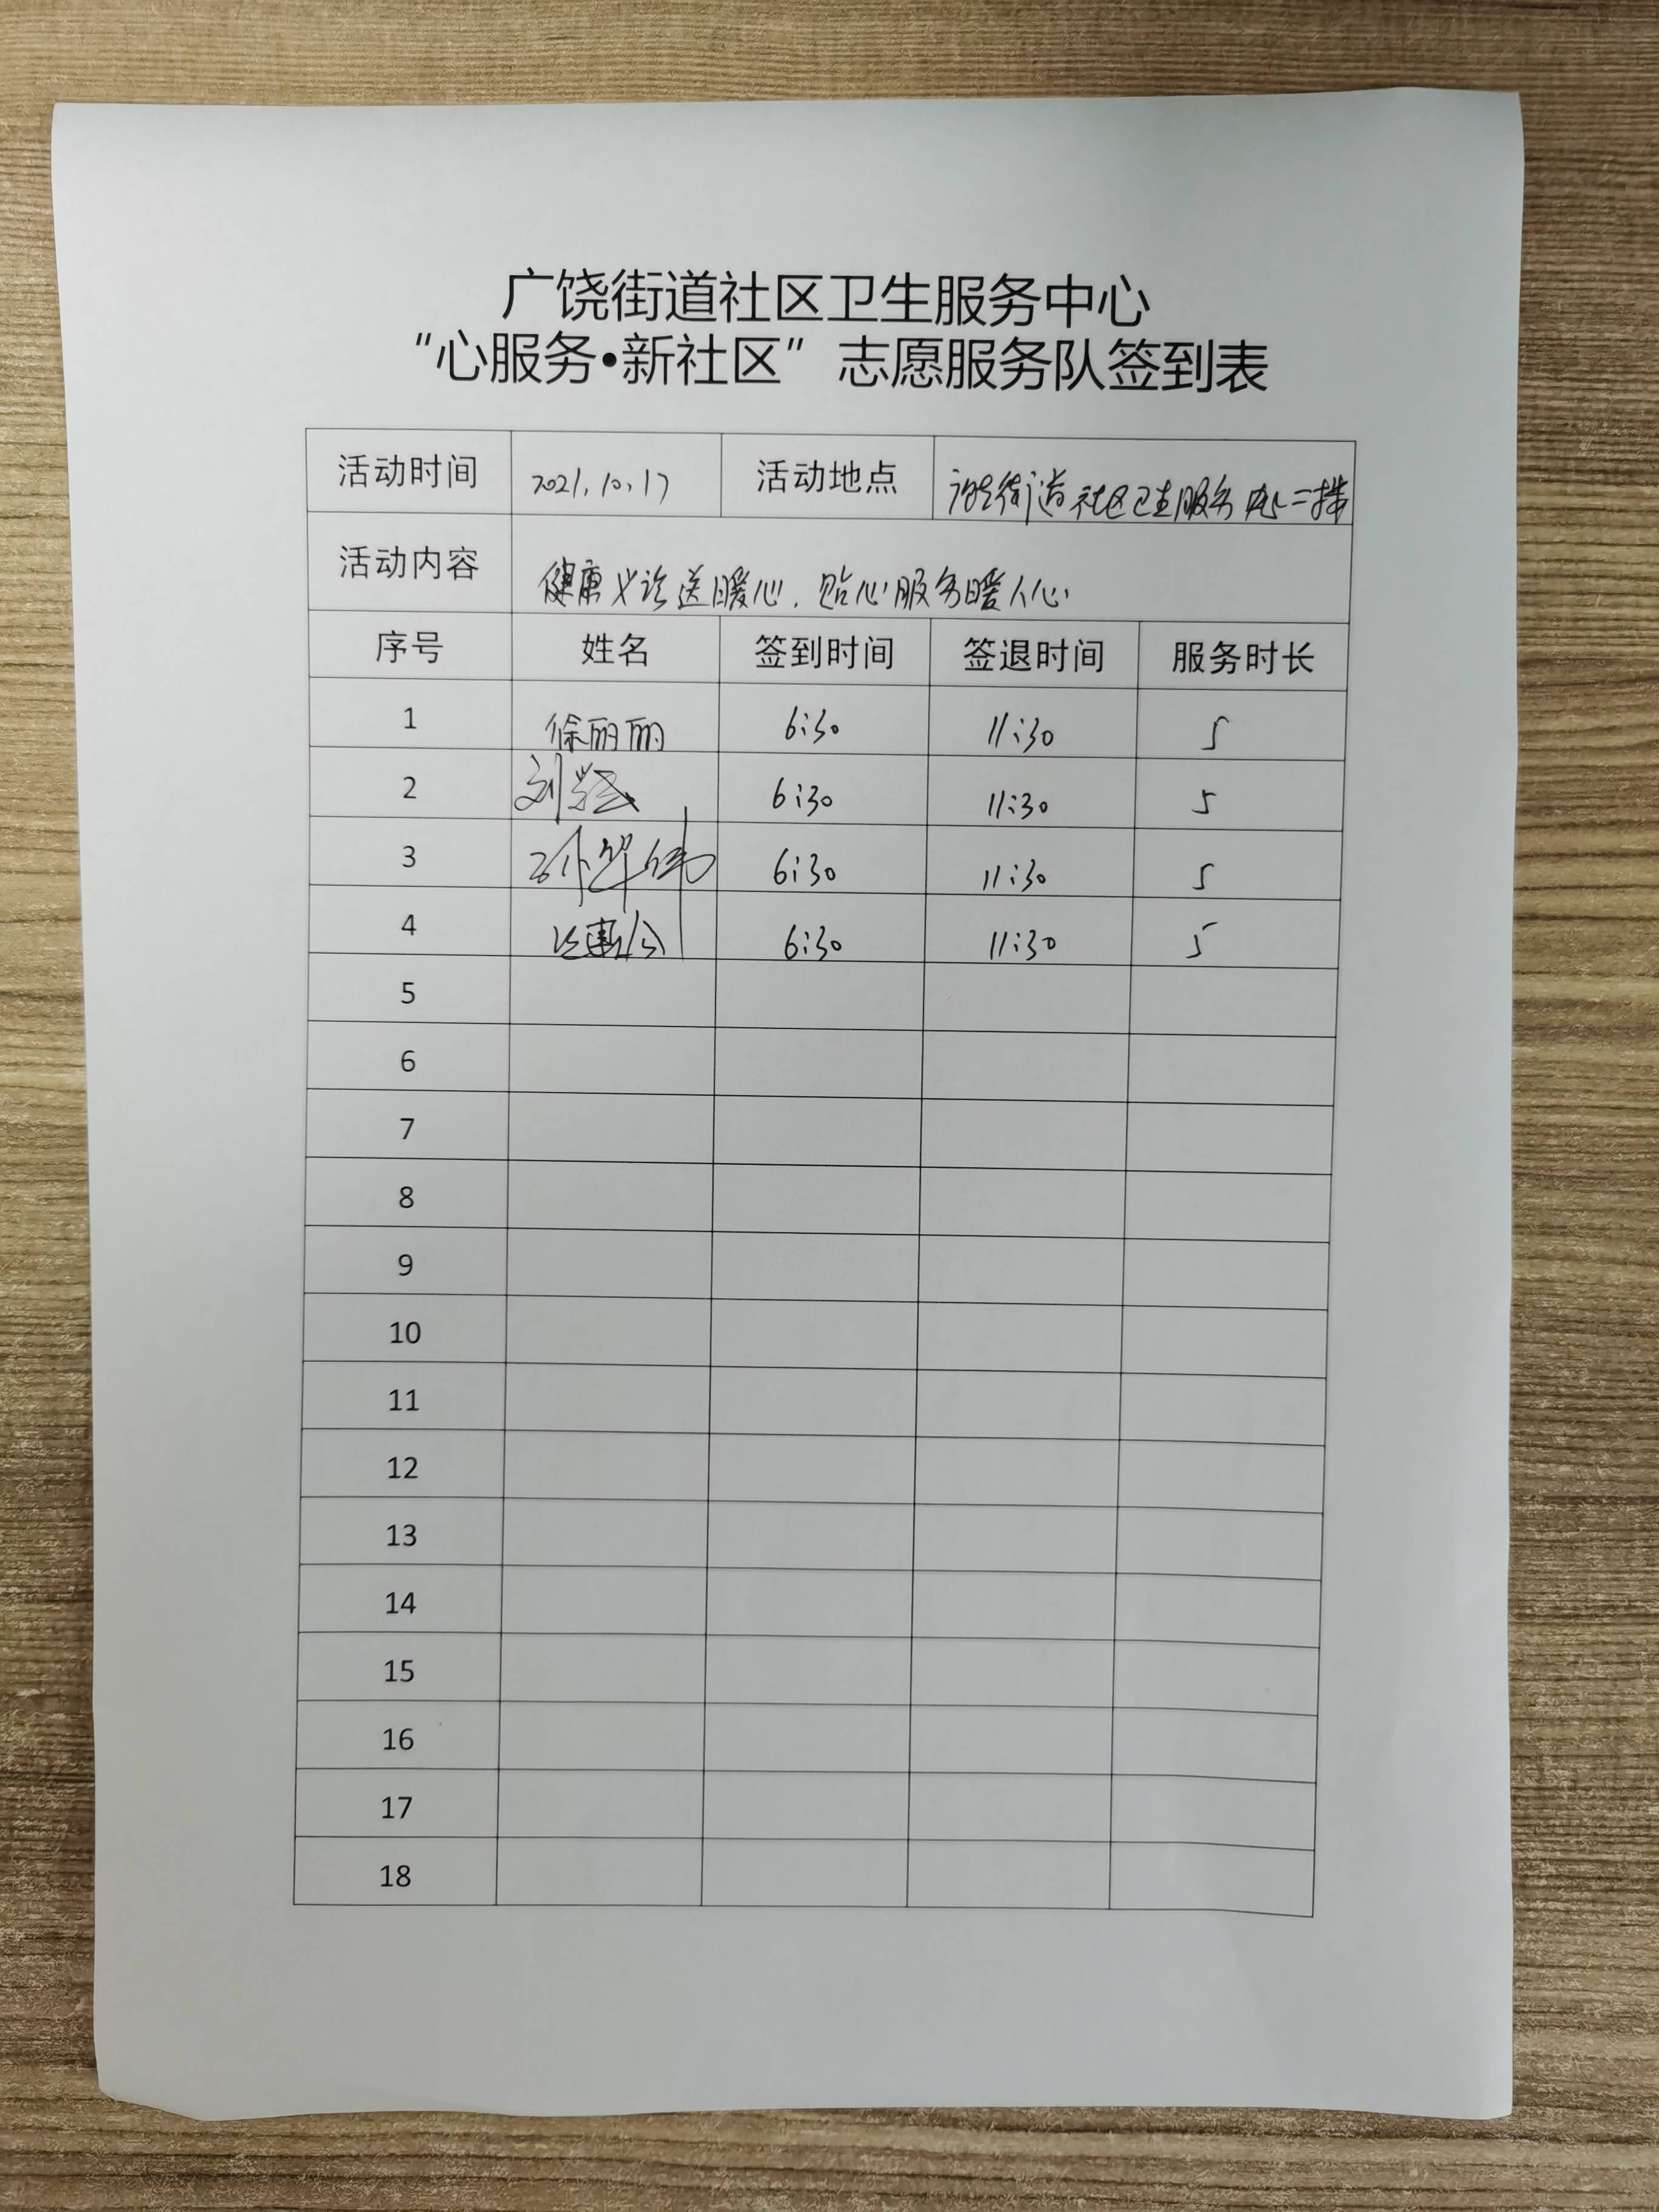 广饶街道社区卫生服务中心
“心服务•新社区”志愿服务队签到表
活动时间 2021.10.17 活动地点 街道社区卫生服务中心二楼
活动内容 健康义诊送暖心.贴心服务暖人心
序号 姓名 签到时间 签退时间 服务时长
1 徐丽丽 6:30 11:30 5
2 刘 6:30 11:30 5
3 孙华伟 6:30 11:30 5
4 6:30 11:30 5
5
6
7
8
9
10
11
12
13
14
15
16
17
18